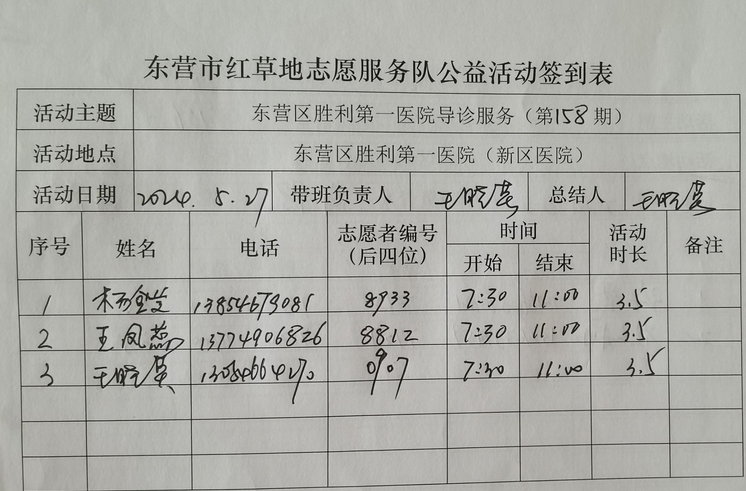 东营市红草地志愿服务队公益活动签到表
活动主题 东营区胜利第一医院导诊服务（第158期）
活动地点 东营区胜利第一医院（新区医院）
活动日期 2024.5.27 带班负责人 王晓英 总结人 王晓英
序号 姓名 电话 志愿者编号（后四位） 时间 开始 结束 活动时长 备注
1 13854679081 8933 7:30 11:00 3.5
2 王凤蕊 13774906826 8812 7:30 11:00 3.5
3 王晓英 13054664270 0907 7:30 11:00 3.5